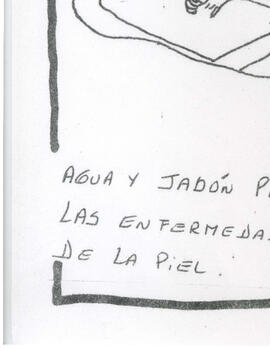 AGUA Y JABÓN P
LAS ENFERMEDA
DE LA PIEL.